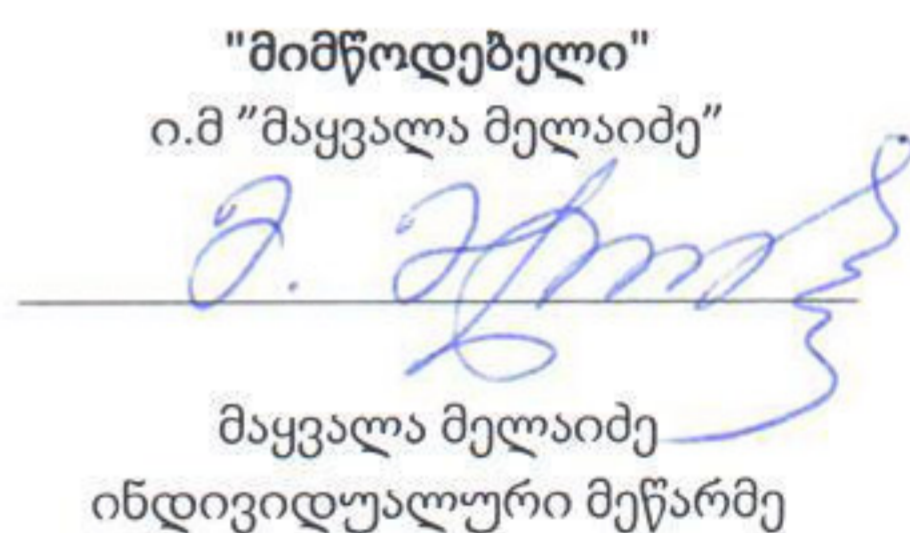 "მიმწოდებელი"
ი.მ ”მაყვალა მელაიძე”
მ.
მაყვალა მელაიძე
ინდივიდუალური მეწარმე